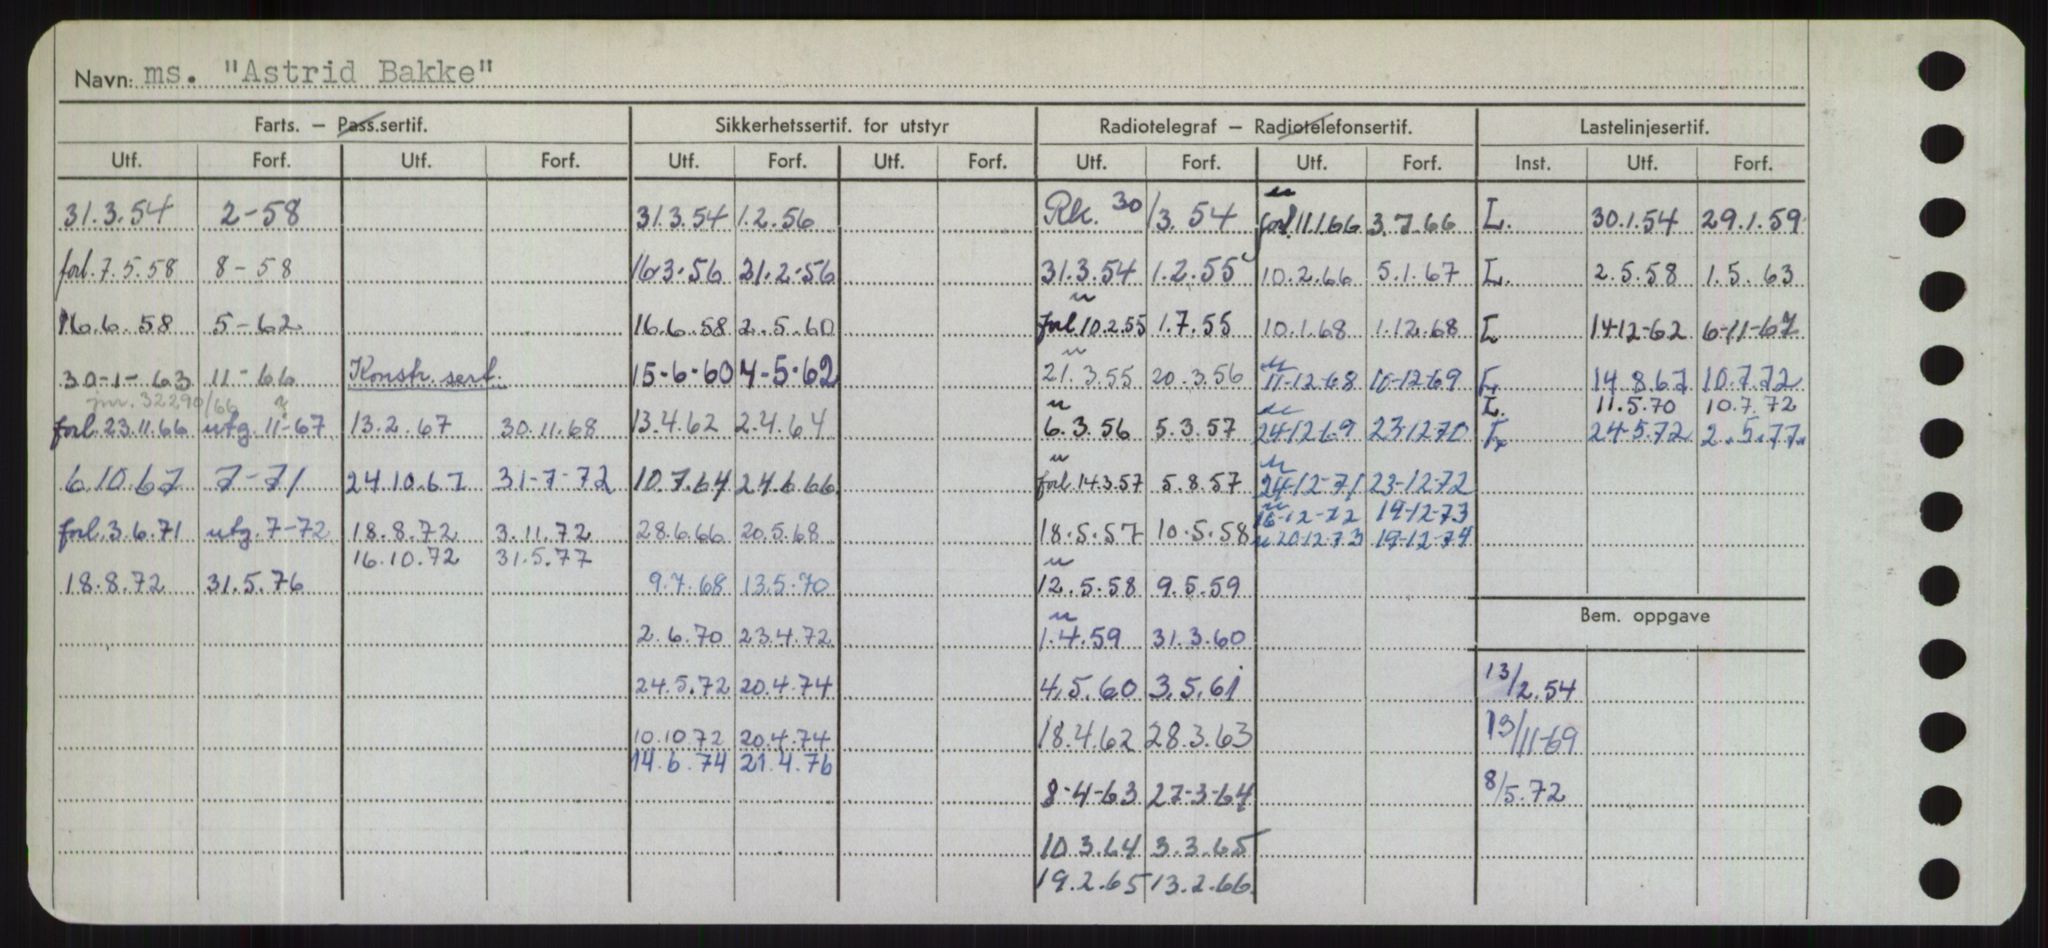 Navn: ms. "Astrid Bakke"
Farts. — Pass.sertif. Sikkerhetssertif. for utstyr Radiotelegraf — Radiotelefonsertif. Lastelinjesertif.
Utf. Forf. Utf. Forf. Utf. Forf. Utf. Forf. Utf. Forf. Utf. Forf. Inst. Utf. Forf.
31.3.54 2-58 31.3.54 1.2.56 Rk. 30/3.54 forl. 11.1.66 3.7.66 L. 30.1.54 29.1.59
forl. 7.5.58 8-58 16.3.56 21.2.56 31.3.54 1.2.55 10.2.66 5.1.67 L. 2.5.58 1.5.63
16.6.58 5-62 16.6.58 2.5.60 forl 10.2.55 1.7.55 10.1.68 1.12.68 L 14-12-62 6-11-67
30-1-63 11-66 Konstr. sert. 15-6-60 4-5-62 21.3.55 20.3.56 11-12-68 10-12-69 L. 14.8.67 10.7.72
jnr. 32290/66 L. 11.5.70 10.7.72
forl. 23.11.66 utg. 11-67 13.2.67 30.11.68 13.4.62 2.4.64 6.3.56 5.3.57 24-12-69 23-12-70 L. 24-5.72 2.5.77
6.10.67 7-71 24.10.67 31-7-72 10.7.64 24.6.66 forl. 14.3.57 5.8.57 24-12-71 23-12-72
16-12-72 19-12-73
forl. 3.6.71 utg. 7-72 18.8.72 3.11.72 28.6.66 20.5.68 18.5.57 10.5.58 20.12.73 19-12-74
16.10.72 31.5.77
18.8.72 31.5.76 9.7.68 13.5.70 12.5.58 9.5.59
Bem. oppgave
2.6.70 23.4.72 1.4.59 31.3.60
24.5.72 20.4.74 4.5.60 3.5.61 13/2.54
10.10.72 20.4.74 18.4.62 28.3.63 13/11-69
14.6.74 21.4.76
8-4-63 27-3-64 8/5.72
10.3.64 3.3.65
19.2.65 13.2.66